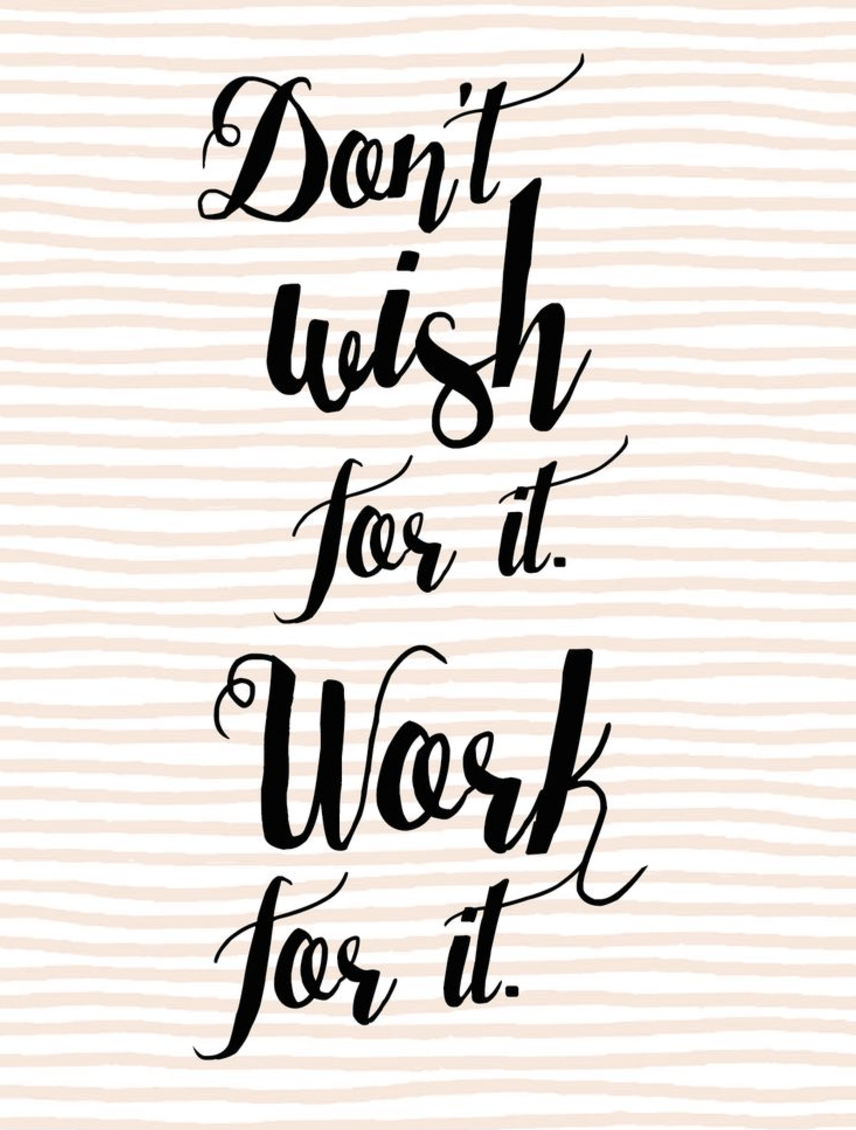 Don't
wish
for it.
Work
for it.